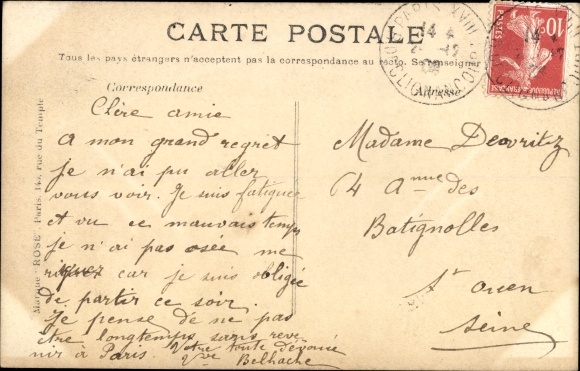 CARTE POSTALE
Tous les pays étrangers n'acceptent pas la correspondance au recto. Se renseigner
Correspondance
Adresse
Chère amie
A mon grand regret
je n'ai pu aller
vous voir. Je suis fatiguée
et vu ce mauvais temps
je n'ai pas osée me
risquez car je suis obligée
de partir ce soir.
Je pense de ne pas
etre longtemps sans reve
nir à Paris. Votre toute dévouée
Vve Belhache
Madame
64 Anue des
Batignolles
St Ouen
Seine
Marque "ROSE" Paris, rue du Temple
10
POSTES
PARIS XVIII
14